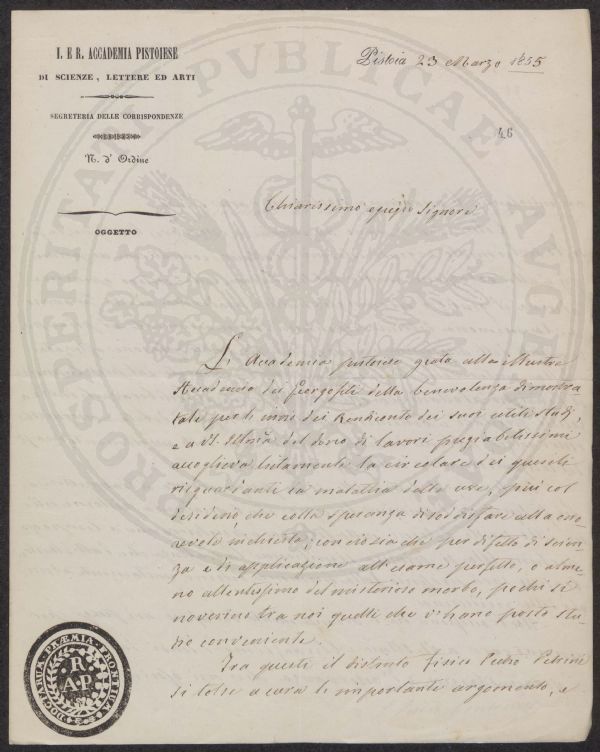 I. E R. ACCADEMIA PISTOIESE
DI SCIENZE, LETTERE ED ARTI
SEGRETERIA DELLE CORRISPONDENZE
N. d' Ordine
OGGETTO
Pistoia 23 Marzo 1855
46
Chiarissimo egregio Signore
L' Accademia pistoiese grata alla illustre
Accademia dei Georgofili della benevolenza dimostra-
tale per l' invio dei Rendiconto dei suoi celebri studj,
e a V. S. Ill.ma del dono di lavori pregiabilissimi
accoglieva lietamente la circolare dei quesiti
risguardanti la malattia delle uve, più col
desiderio, che colla speranza di sodisfare alla
inchiesta; conciosia che per difetto di scien-
za e di applicazione all' esame perfetto, o alme-
no attentissimo del misterioso morbo, pochi si
noverino tra noi quelli che v' hano posto stu-
dio conveniente.
Tra questi il distinto fisico Pietro Petrini
si tolse a cura le importante argomento, e
DOCTARUM PRÆMIA FRONTIUM
R.
A. P.
PROSPERITATI PVBLICAE AVGENDAE